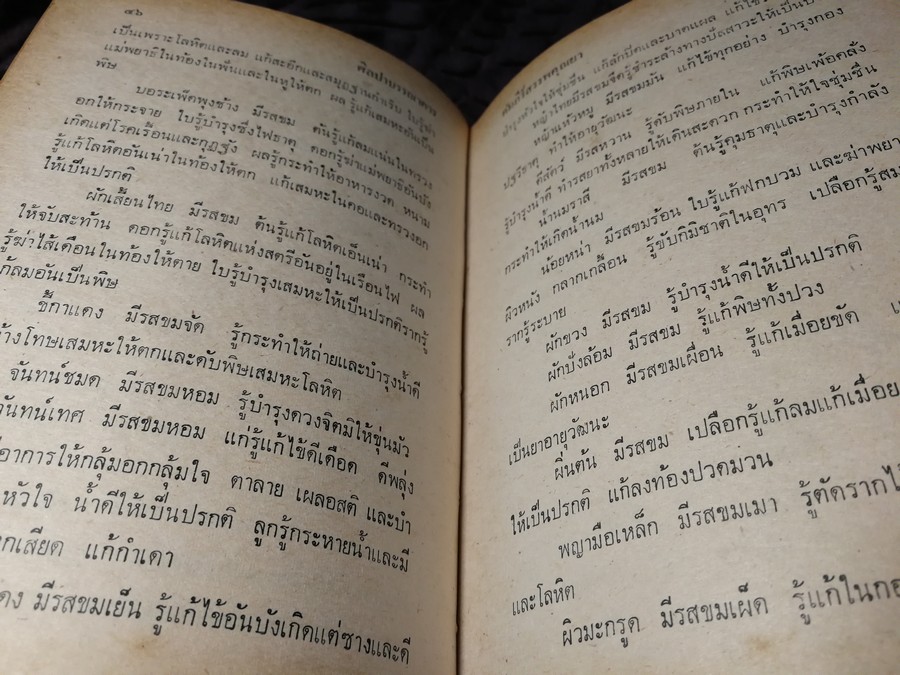 ๔๖
ศิลปาบรรณาคาร
เป็นเพราะโลหิตและลม แก้สะอึกและสมุฏฐานกำเริบ ใบรู้ฆ่า
แม่พยาธิในท้องในฟันและในหูให้ตก ผล รู้แก้เสมหะอันเป็น
พิษ
บอระเพ็ดพุงช้าง มีรสขม ต้นรู้แก้ลมแน่นในทรวง
อกให้กระจาย ใบรู้บำรุงซึ่งไฟธาตุ ดอกรู้ฆ่าแม่พยาธิอันบัง
เกิดแต่โรคเรื้อนและกุฏฐัง ผลรู้กระทำให้อาหารงวด หนาม
รู้แก้โลหิตอันเน่าในท้องให้ตก แก้เสมหะในคอและทรวงอก
ให้เป็นปรกติ
ผักเสี้ยนไทย มีรสขม ต้นรู้แก้โลหิตเอ็นเน่า กระทำ
ให้จับสะท้าน ดอกรู้แก้โลหิตแห่งสตรีอันอยู่ในเรือนไฟ ผล
รู้ฆ่าไส้เดือนในท้องให้ตาย ใบรู้บำรุงเสมหะให้เป็นปรกติรากรู้
ก้ลมอันเป็นพิษ
ขี้กาแดง มีรสขมจัด รู้กระทำให้ถ่ายและบำรุงน้ำดี
้างโทษเสมหะให้ตกและดับพิษเสมหะโลหิต
จันทน์ชมด มีรสขมหอม รู้บำรุงดวงจิตมิให้ขุ่นมัว
จันทน์เทศ มีรสขมหอม แก่รู้แก้ไข้ดีเดือด ดีพลุ่ง
อาการให้กลุ้มอกกลุ้มใจ ตาลาย เผลอสติ และบำ
หัวใจ น้ำดีให้เป็นปรกติ ลูกรู้กระหายน้ำและมี
กเสียด แก้กำเดา
ดง มีรสขมเย็น รู้แก้ไข้อันบังเกิดแต่ซางและดี
คัมภีร์สรรพคุณยา
บำรุงหัวใจให้ชุ่มชื่น แก้ลักปิดและบาดแผล แก้ไข้
หญ้าไทยมีรสขมจืดรู้ชำระล้างทางปัสสาวะให้เป็น
หญ้าแห้วหมู มีรสขมมัน แก้ไข้ทุกอย่าง บำรุงกอง
ปฐวีธาตุ ทำให้อายุวัฒนะ
ดีสัตว์ มีรสหวาน รู้ดับพิษภายใน แก้พิษเพ้อคลั่ง
รู้บำรุงน้ำดี ทำรสยาทั้งหลายให้เดินสะดวก กระทำให้ใจชุ่มชื่น
น้ำนมราสี มีรสขม ต้นรู้คุมธาตุและบำรุงกำลัง
กระทำให้เกิดน้ำนม
น้อยหน่า มีรสขมร้อน ใบรู้แก้ฟกบวม และฆ่าพยา
ผิวหนัง กลากเกลื้อน รู้ขับกิมิชาติในอุทร เปลือกรู้สม
รากรู้ระบาย
ผักขวง มีรสขม รู้บำรุงน้ำดีให้เป็นปรกติ
ผักปั่งล้อม มีรสขม รู้แก้พิษทั้งปวง
ผักหนอก มีรสขมเผื่อน รู้แก้เมื่อยขัด
เป็นยาอายุวัฒนะ
ผิ่นต้น มีรสขม เปลือกรู้แก้ลมแก้เมื่อย
ให้เป็นปรกติ แก้ลงท้องปวดมวน
พญามือเหล็ก มีรสขมเมา รู้ตัดรากไ
และโลหิต
ผิวมะกรูด มีรสขมเผ็ด รู้แก้ในกอ